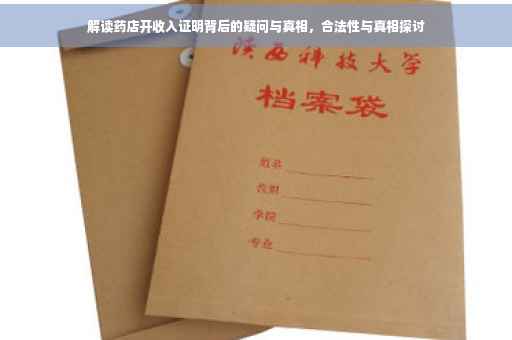 解读药店开收入证明背后的疑问与真相，合法性与真相探讨
陕西科技大学
档案袋
姓名
学院
专业